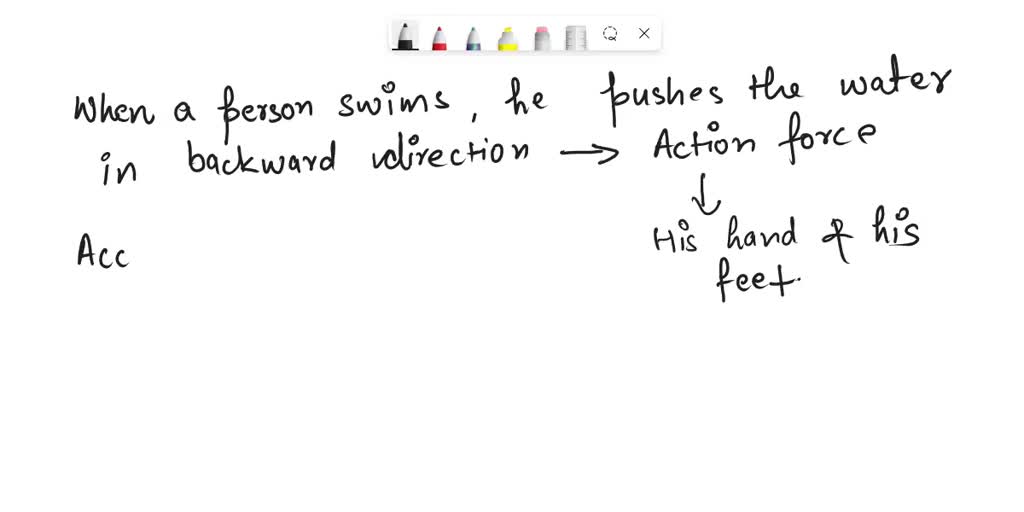 When a person swims, he pushes the water
in backward direction → Action force
↓
His hand & his
feet.
Acc